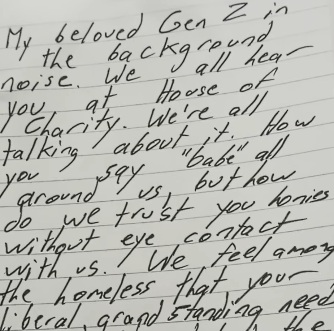 My beloved Gen Z in
the background
noise. We all hear
you at House of
Charity. We're all
talking about it. How
you say "babe" all
around us, but how
do we trust you homies
without eye contact
with us. We feel among
the homeless that your
liberal grand standing need
the